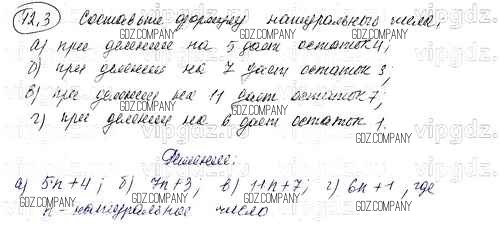 12,3 Составьте формулу натурального числа,
а) при делении на 5 даёт остаток 4;
GDZ.COMPANY GDZ.COMPANY
б) при делении на 7 даёт остаток 3;
GDZ.COMPANY GDZ.COMPANY
в) при делении на 11 даёт остаток 7;
GDZ.COMPANY GDZ.COMPANY
г) при делении на 6 даёт остаток 1.
GDZ.COMPANY GDZ.COMPANY
vipgdz
Решение:
GDZ.COMPANY GDZ.COMPANY
а) 5n+4; б) 7n+3; в) 11n+7; г) 6n+1, где
GDZ.COMPANY GDZ.COMPANY
n - натуральное число